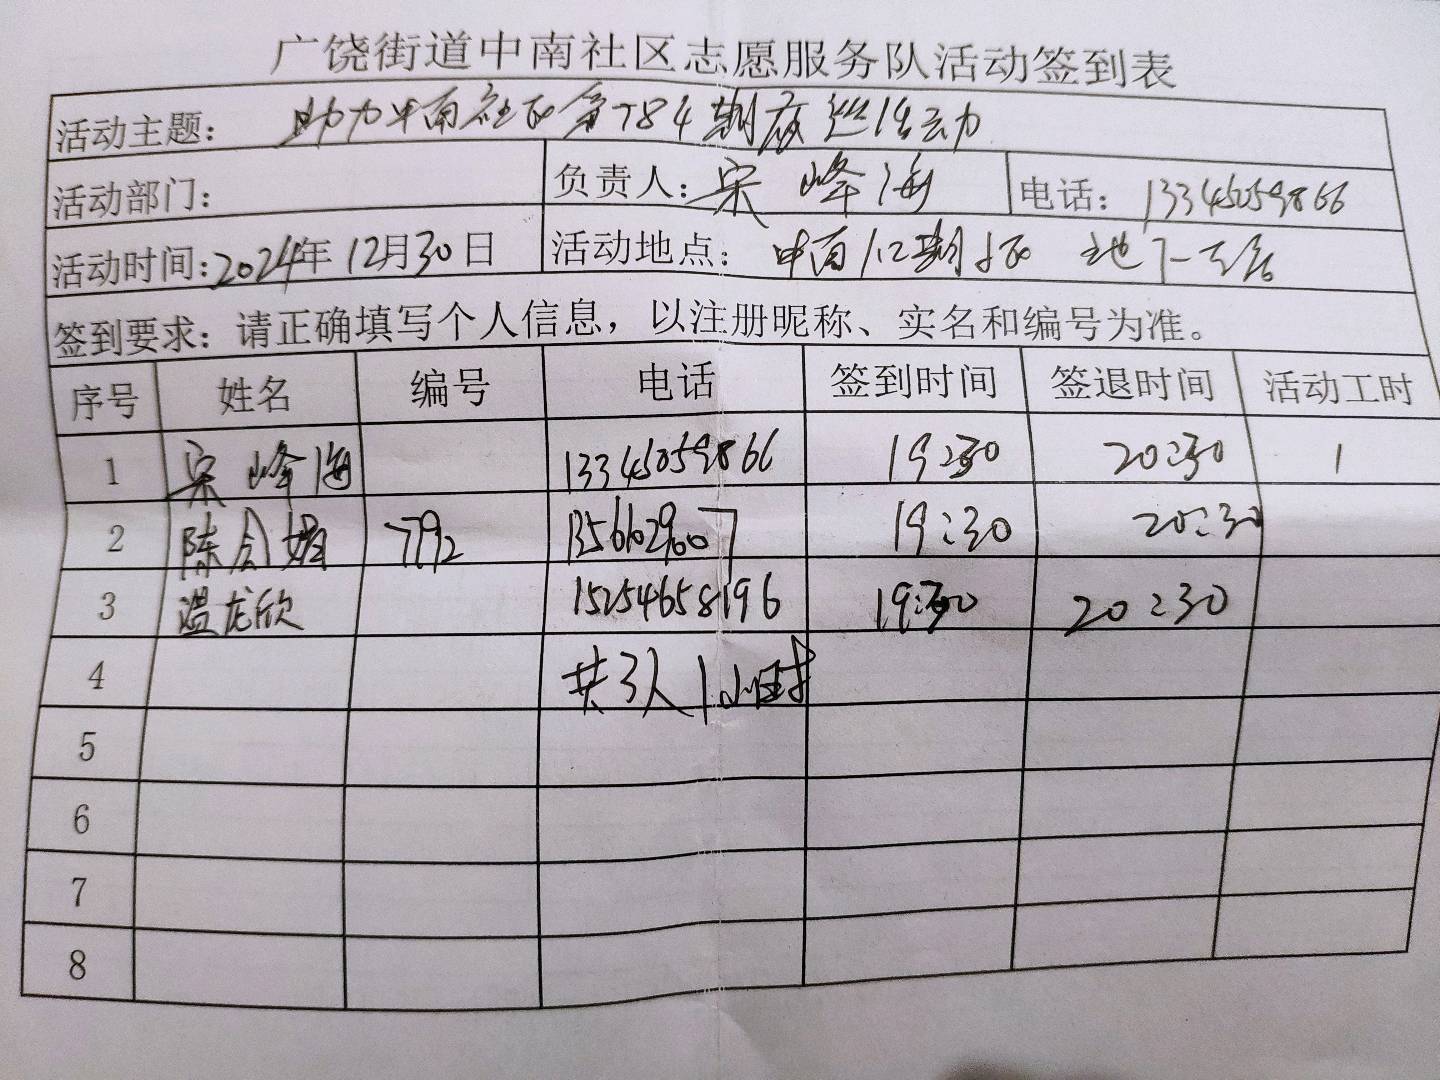 广饶街道中南社区志愿服务队活动签到表
活动主题： 助力中南社区第784期夜巡活动
活动部门： 负责人：宋峰海 电话：13345059866
活动时间：2024年12月30日 活动地点：中南1.2期 地下
签到要求：请正确填写个人信息，以注册昵称、实名和编号为准。
序号 姓名 编号 电话 签到时间 签退时间 活动工时
1 宋峰海 13345059866 19:30 20:30 1
2 陈会娟 7792 13566029607 19:30 20:30
3 温龙欣 15254658196 19:30 20:30
4 共3人1小时
5
6
7
8